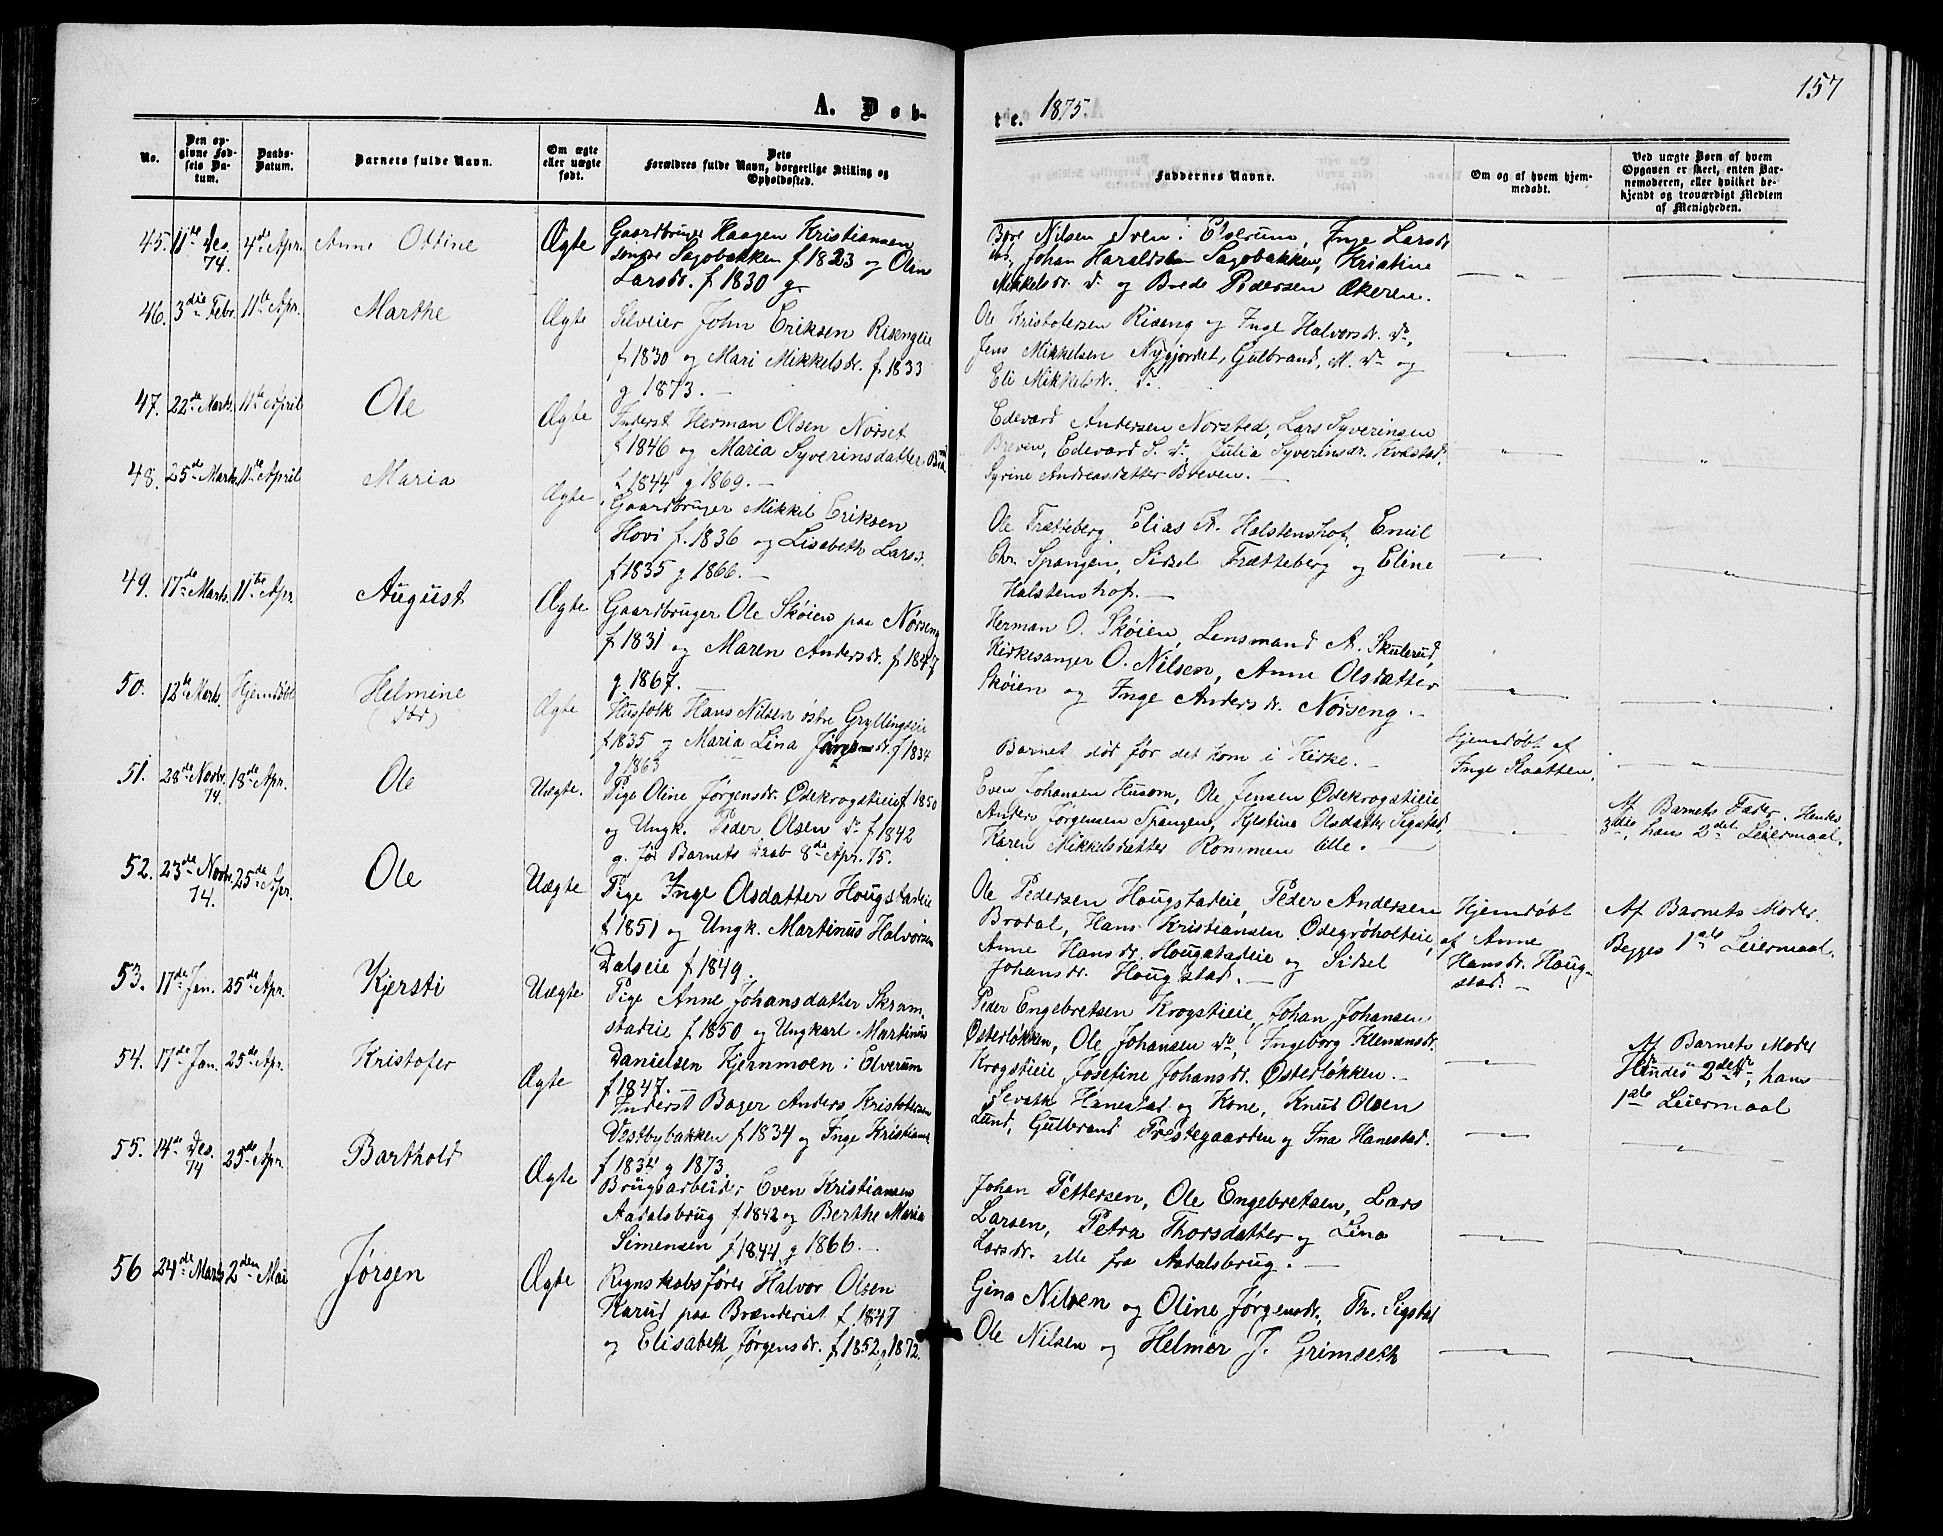 157
A. Døb-
te. 1875.
No.
Den opgivne Fødsels Datum.
Daabs-Datum.
Barnets fulde Navn.
Om ægte eller uægte født.
Dets Forældres fulde Navn, borgerlige Stilling og Opholdssted.
Faddernes Navne.
Om og af hvem hjemmedøbt.
Ved uægte Børn af hvem Opgaven er skeet, enten Barnemoderen, eller hvilket bekjendt og troværdigt Medlem af Menigheden.
45. 11te Des. 74. 4de Apr. Anne Ottine Ægte
Gaardbruger Haagen Kristiansen
søndre Sagbakken f 1823 og Olea
Larsdr. f 1830 g
Nilsen Sven i Elverum, Inge Larsdr.
Johan Haraldsen Sagbakken, Kristine
Mikkelsdr. do og Brede Pedersen Økeren.
46. 3die Febr. 11te Apr. Marthe Ægte
Selveier John Eriksen Risengeie
f 1830 og Mari Mikkelsdr. f. 1833
g 1873. -
Ole Kristofersen Riseng og Inge Halvorsdr. do,
Jens Mikkelsen Nygjordet, Gulbrand M. do og
Eli Mikkelsdr. do.
47. 22de Marts. 11te April Ole Ægte
Inderst Herman Olsen Norset
f 1846 og Maria Syverinsdatter
f 1844 g 1869. -
Edevard Andersen Norsted, Lars Syverinsen
Breven, Edevard S. do, Julia Syverinsdr. Kvastad,
Syrine Andreasdatter Breven. -
48. 25de Marts. 11te April Maria Ægte
Gaardbruger Mikkel Eriksen
Hovi f. 1836 og Lisabeth Larsd.
f 1835 g 1866. -
Ole Trætteberg, Elias A. Halstenshof, Emil
Chr. Spangen, Sidsel Trætteberg og Eline
Halstenshof. -
49. 17de Marts. 11te Apr. August Ægte
Gaardbruger Ole Skøien paa Nørseng
f 1831 og Maren Andersdr. f 1847
g 1867.
Herman O. Skøien, Lensmand A. Skulerud,
Kirkesanger O. Nilsen, Anne Olsdatter
Skøien og Inge Andersdr. Nørseng. -
50. 12te Marts. Hjemdøbt Helmine
(død)
Ægte
Husfolk Hans Nilsen østre Gryllingseie
f 1835 og Maria Lina Jørgensdr. f 1834
g 1863
Barnet død før det kom i Kirke. -
Hjemdøbt af
Inge Kaatten.
51. 28de Novbr. 74. 18de Apr. Ole Uægte.
Pige Oline Jørgensdr. Ødekrogstieie f 1850
og Ungk. Peder Olsen do f 1842
g. før Barnets Daab 8de Apr. 75.
Even Johansen Husom, Ole Jensen Ødekrogstieie
Anders Jørgensen Spangen, Kjestina Olsdatter Sigstad,
Karen Mikkelsdatter Rommen alle. -
Af Barnets Fader. Hendes
3die, hans 2det Leiermaal.
52. 23de Novbr. 74. 25de Apr. Ole Uægte
Pige Inge Olsdatter Hougstadeie
f 1851 og Ungk. Martinus Halvorsen
Dalseie f 1849.
Ole Pedersen Hougstadeie, Peder Andersen
Brodal, Hans Kristiansen Ødegrøholteie,
Anne Hansdr. Hougstadeie og Sidsel
Johansdr. Hougstad. -
Hjemdøbt
af Anne
Hansdr. Houg-
stad. -
Af Barnets Moder.
Begges 1ste Leiermaal.
53. 17de Jan. 25de Apr. Kjersti Uægte
Pige Anne Johansdatter Skram-
stadeie f 1850 og Ungkarl Martinus
Danielsen Kjernmoen i Elverum
f 1847.
Peder Engebretsen Krogstieie, Johan Johansen
Østerløkken, Ole Johansen do, Ingeborg Klemensdr.
Krogstieie, Josefine Johansdr. Østerløkken. -
Af Barnets Moder
Hendes 2det, hans
1ste Leiermaal
54. 17de Jan. 25de Apr. Kristofer Ægte
Inderst Bager Anders Kristofersen
Vestbybakken f 1834 og Inge Kristians
f 1834 g 1873.
Sevath Hanestad og Kone, Knud Olsen
Lund, Gulbrand Prestegaarden og Ina Hanestad.
55. 14de Des. 74 25de Apr. Barthold Ægte
Brugsarbeider Even Kristiansen
Aadalsbrug, f 1842 og Berthe Maria
Simensen f 1844 g 1866. -
Johan Pettersen, Ole Engebretsen, Lars
Larsen, Petra Thorsdatter og Lina
Larsdr. alle fra Aadalsbrug. -
56 24de Marts 2den Mai Jørgen Ægte
Regnskabsfører Halvor Olsen
Karud paa Brænderiet f 1847
og Elisabeth Jørgensdr. f 1852 g 1872.
Gina Nilsen og Oline Jørgensdr., Th. Sigstad
Ole Nilsen og Helmer J. Grimseth